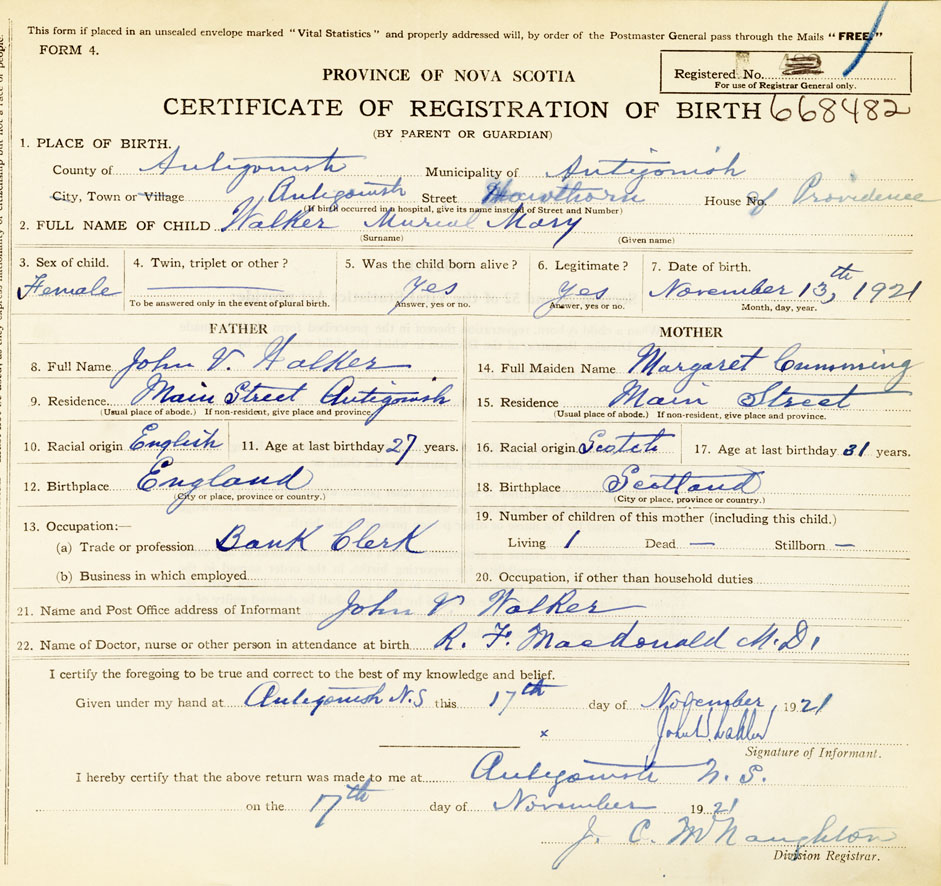 This form if placed in an unsealed envelope marked "Vital Statistics" and properly addressed will, by order of the Postmaster General pass through the Mails "FREE."
FORM 4.
Registered No.
For use of Registrar General only.
PROVINCE OF NOVA SCOTIA
CERTIFICATE OF REGISTRATION OF BIRTH 668482
(BY PARENT OR GUARDIAN)
1. PLACE OF BIRTH.
County of Antigonish Municipality of Antigonish
City, Town or Village Antigonish Street Hawthorn House of Providence
(If birth occurred in a hospital, give its name instead of Street and Number)
2. FULL NAME OF CHILD Walker Murial Mary
(Surname) (Given name)
3. Sex of child. 4. Twin, triplet or other? 5. Was the child born alive? 6. Legitimate? 7. Date of birth.
Female Yes Yes November 13th, 1921
To be answered only in the event of plural birth. Answer, yes or no. Answer, yes or no. Month, day, year.
FATHER
8. Full Name John V. Walker
9. Residence Main Street Antigonish
(Usual place of abode.) If non-resident, give place and province.
10. Racial origin English 11. Age at last birthday 27 years.
12. Birthplace England
(City or place, province or country.)
13. Occupation:—
(a) Trade or profession Bank Clerk
(b) Business in which employed
MOTHER
14. Full Maiden Name Margaret Cumming
15. Residence Main Street
(Usual place of abode.) If non-resident, give place and province.
16. Racial origin Scotch 17. Age at last birthday 31 years.
18. Birthplace Scotland
(City or place, province or country.)
19. Number of children of this mother (including this child.)
Living 1 Dead — Stillborn —
20. Occupation, if other than household duties
21. Name and Post Office address of Informant John V Walker
22. Name of Doctor, nurse or other person in attendance at birth R. F. Macdonald M.D.
I certify the foregoing to be true and correct to the best of my knowledge and belief.
Given under my hand at Antigonish N.S this 17th day of November 1921
x John V. Walker
Signature of Informant.
I hereby certify that the above return was made to me at Antigonish N.S.
on the 17th day of November 1921
J. C. McNaughton
Division Registrar.